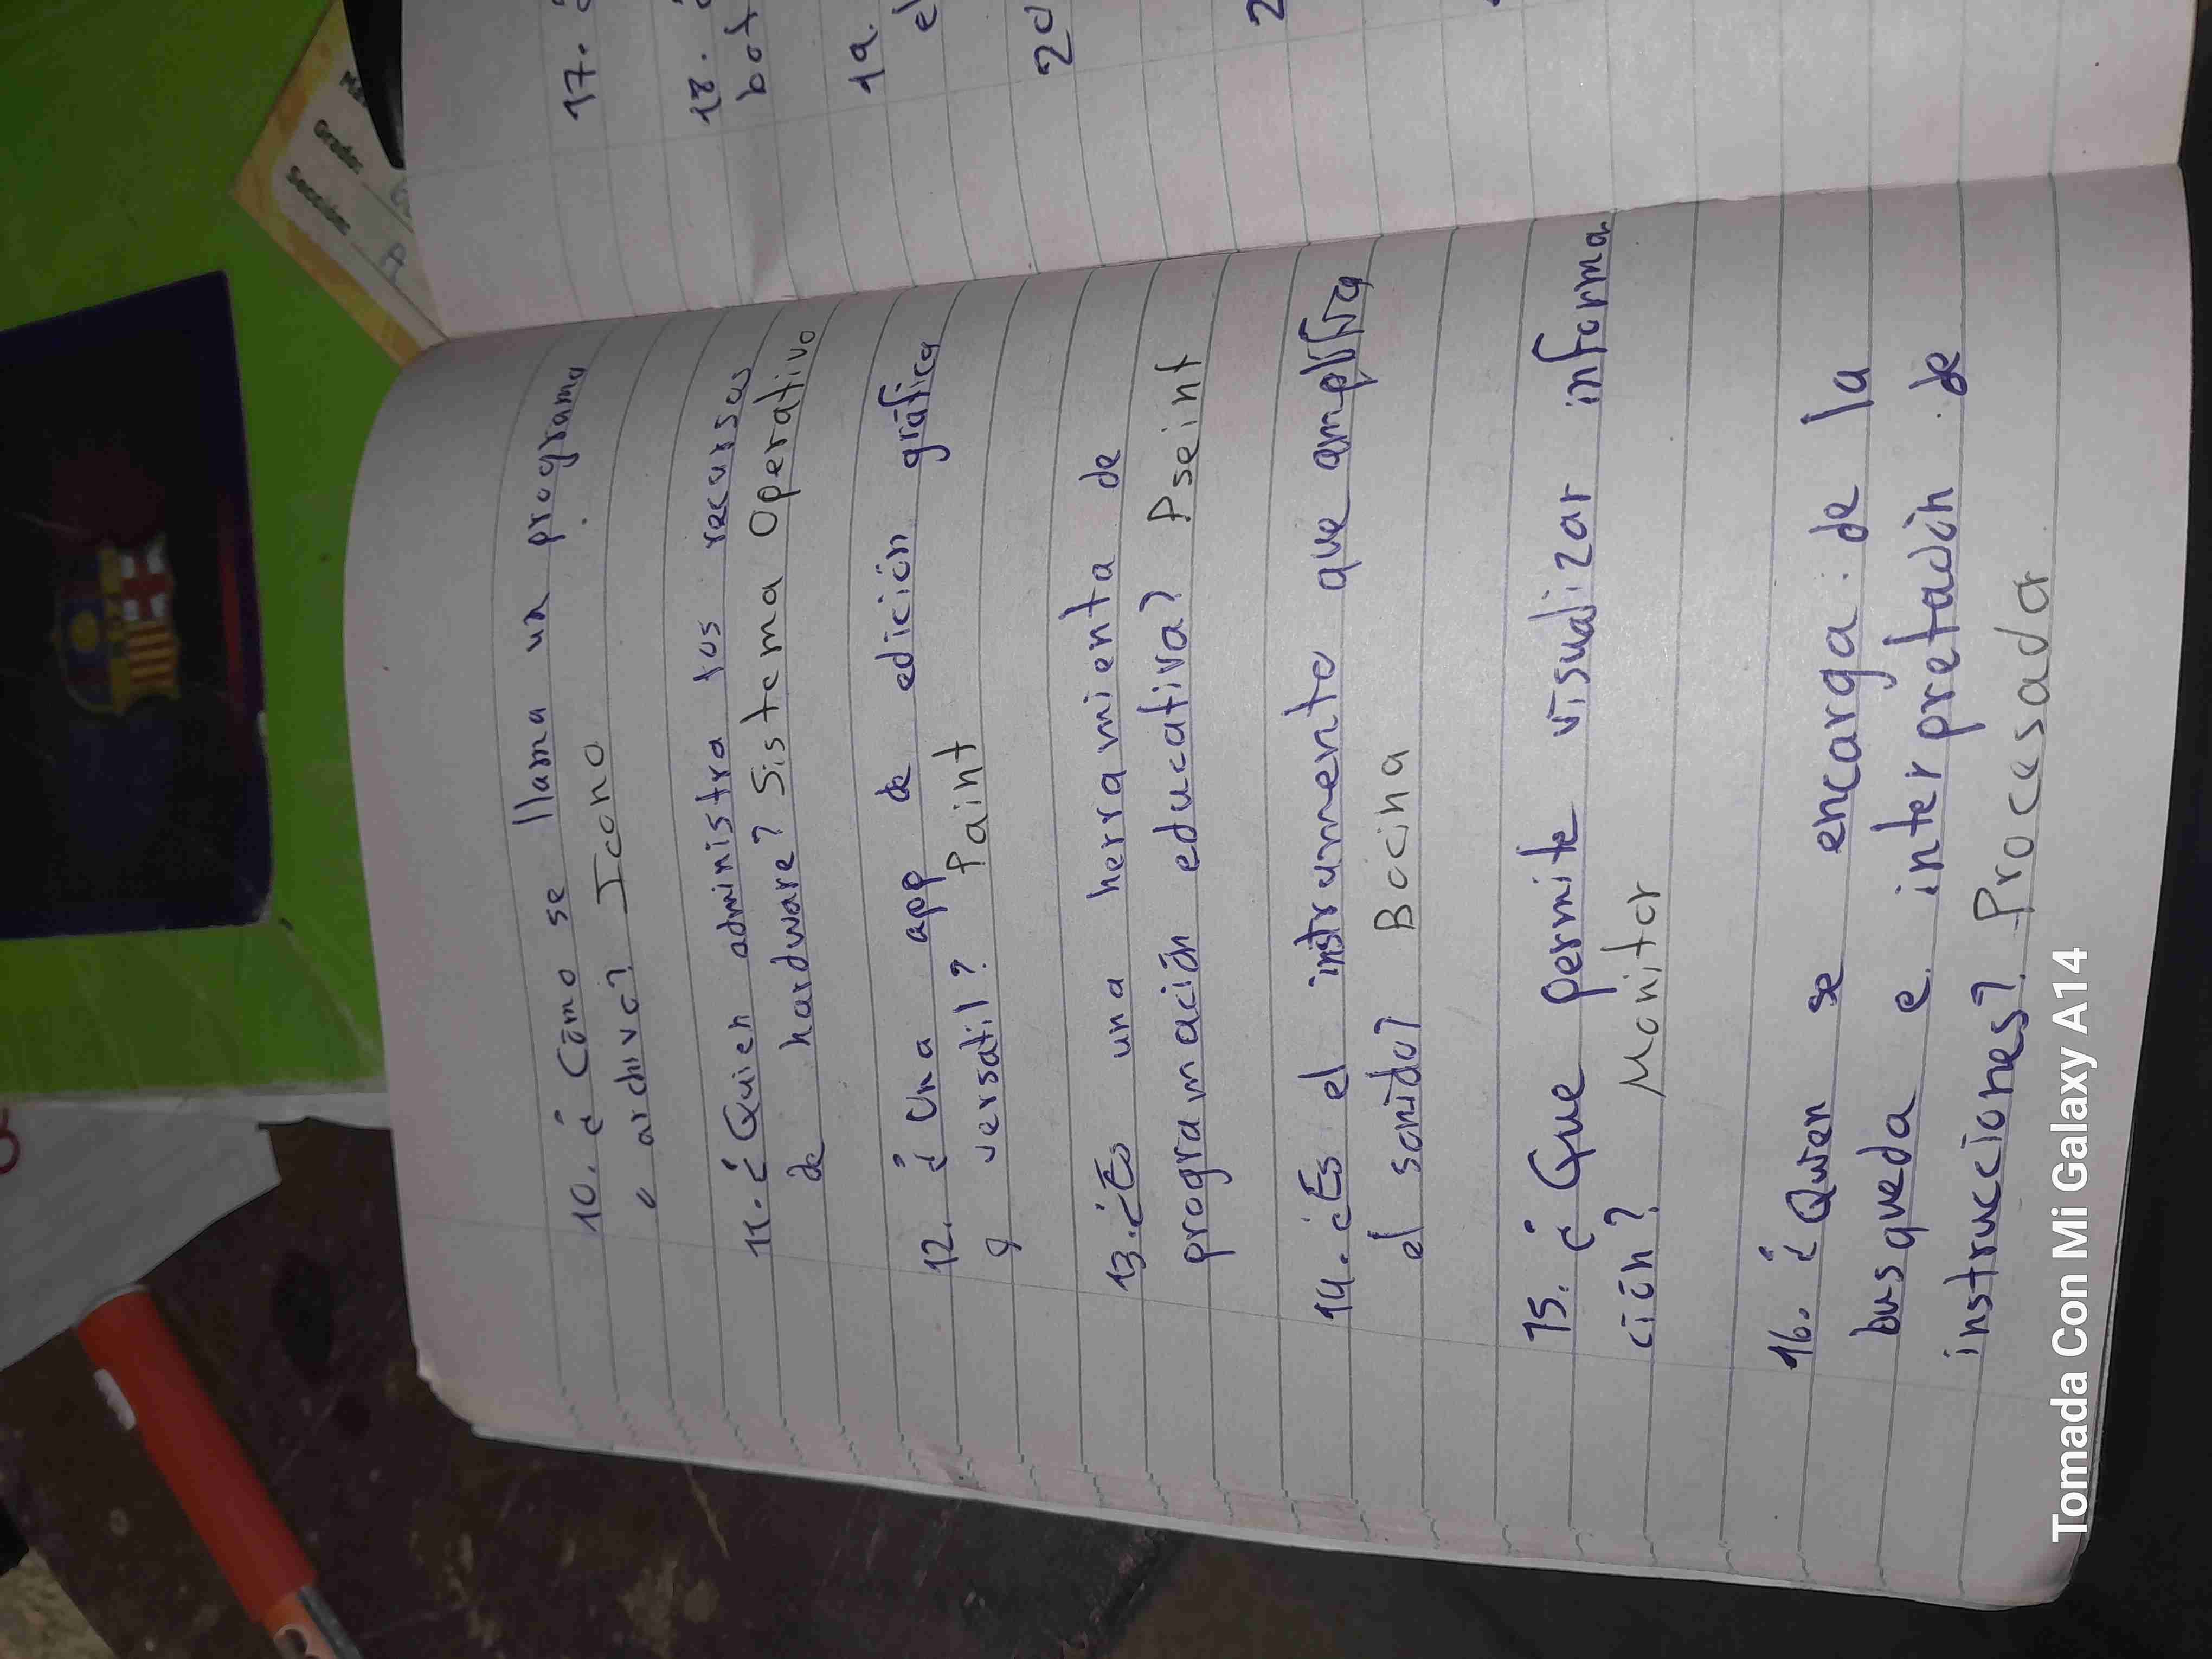 10. ¿Cómo se llama un programa
o archivo? Icono
11. ¿Quien administra los recursos
de hardware? Sistema Operativo
12. ¿Una app de edición gráfica
y versatil? Paint
13. ¿Es una herramienta de
programación educativa? Pseint
14. ¿Es el instrumento que amplifica
el sonido? Bocina
15. ¿Que permite visualizar informa
ción? Monitor
16. ¿Quien se encarga de la
busqueda e interpretación de
instrucciones? Procesador
17. ¿
18. ¿
bot
19.
el
20
2
Grado:
Sección: A
Tomada Con Mi Galaxy A14